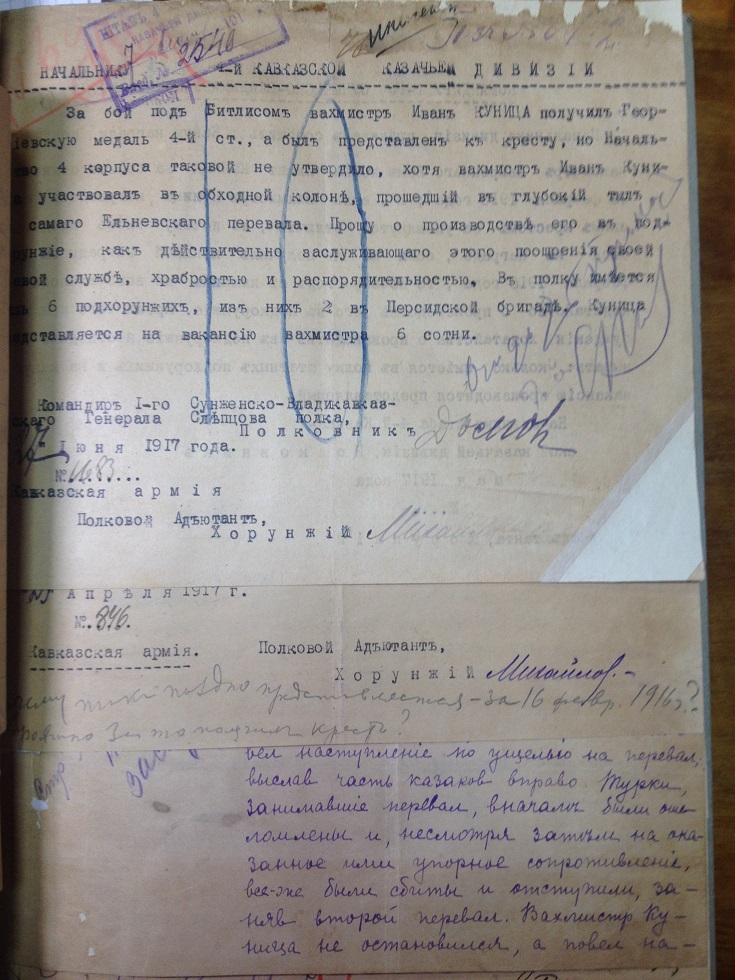 2540
НАЧАЛЬНИКУ 4-й КАВКАЗСКОЙ КАЗАЧЬЕЙ ДИВИЗІИ
За бой подъ Битлисомъ вахмистръ Иванъ КУНИЦА получилъ Геор-
іевскую медаль 4-й ст., а былъ представленъ къ кресту, но Началь-
во 4 корпуса таковой не утвердило, хотя вахмистръ Иванъ Куни-
а участвовалъ въ обходной колонѣ, прошедшій въ глубокій тылъ
самаго Ельневскаго перевала. Прошу о производствѣ его въ под-
рунжіе, какъ дѣйствительно заслуживающаго этого поощренія своей
евой службѣ, храбростью и распорядительностью. Въ полку имѣется
ь 6 подхорунжихъ, изъ нихъ 2 въ Персидской бригадѣ. Куница
дставляется на вакансію вахмистра 6 сотни.
Командиръ I-го Сунженско-Владикавказ-
скаго Генерала Слѣпцова полка,
Полковникъ
27 Іюня 1917 года.
№
Кавказская армія
Полковой Адъютантъ,
Хорунжій Михайловъ
Апрѣля 1917 г.
№. 846.
Кавказская армія. Полковой Адъютантъ,
Хорунжій Михайлов.-
поздно представляется - за 16 февр. 1916 г?
за то получилъ крестъ?
вел наступление по ущелью на перевал,
выслав часть казаков вправо. Турки,
занимавшие перевал, вначалѣ были оше-
ломлены и, несмотря затѣм на ока-
занное ими упорное сопротивленіе,
все-же были сбиты и отступили, за-
няв второй перевал. Вахмистр Ку-
ница не остановился, а повел на-